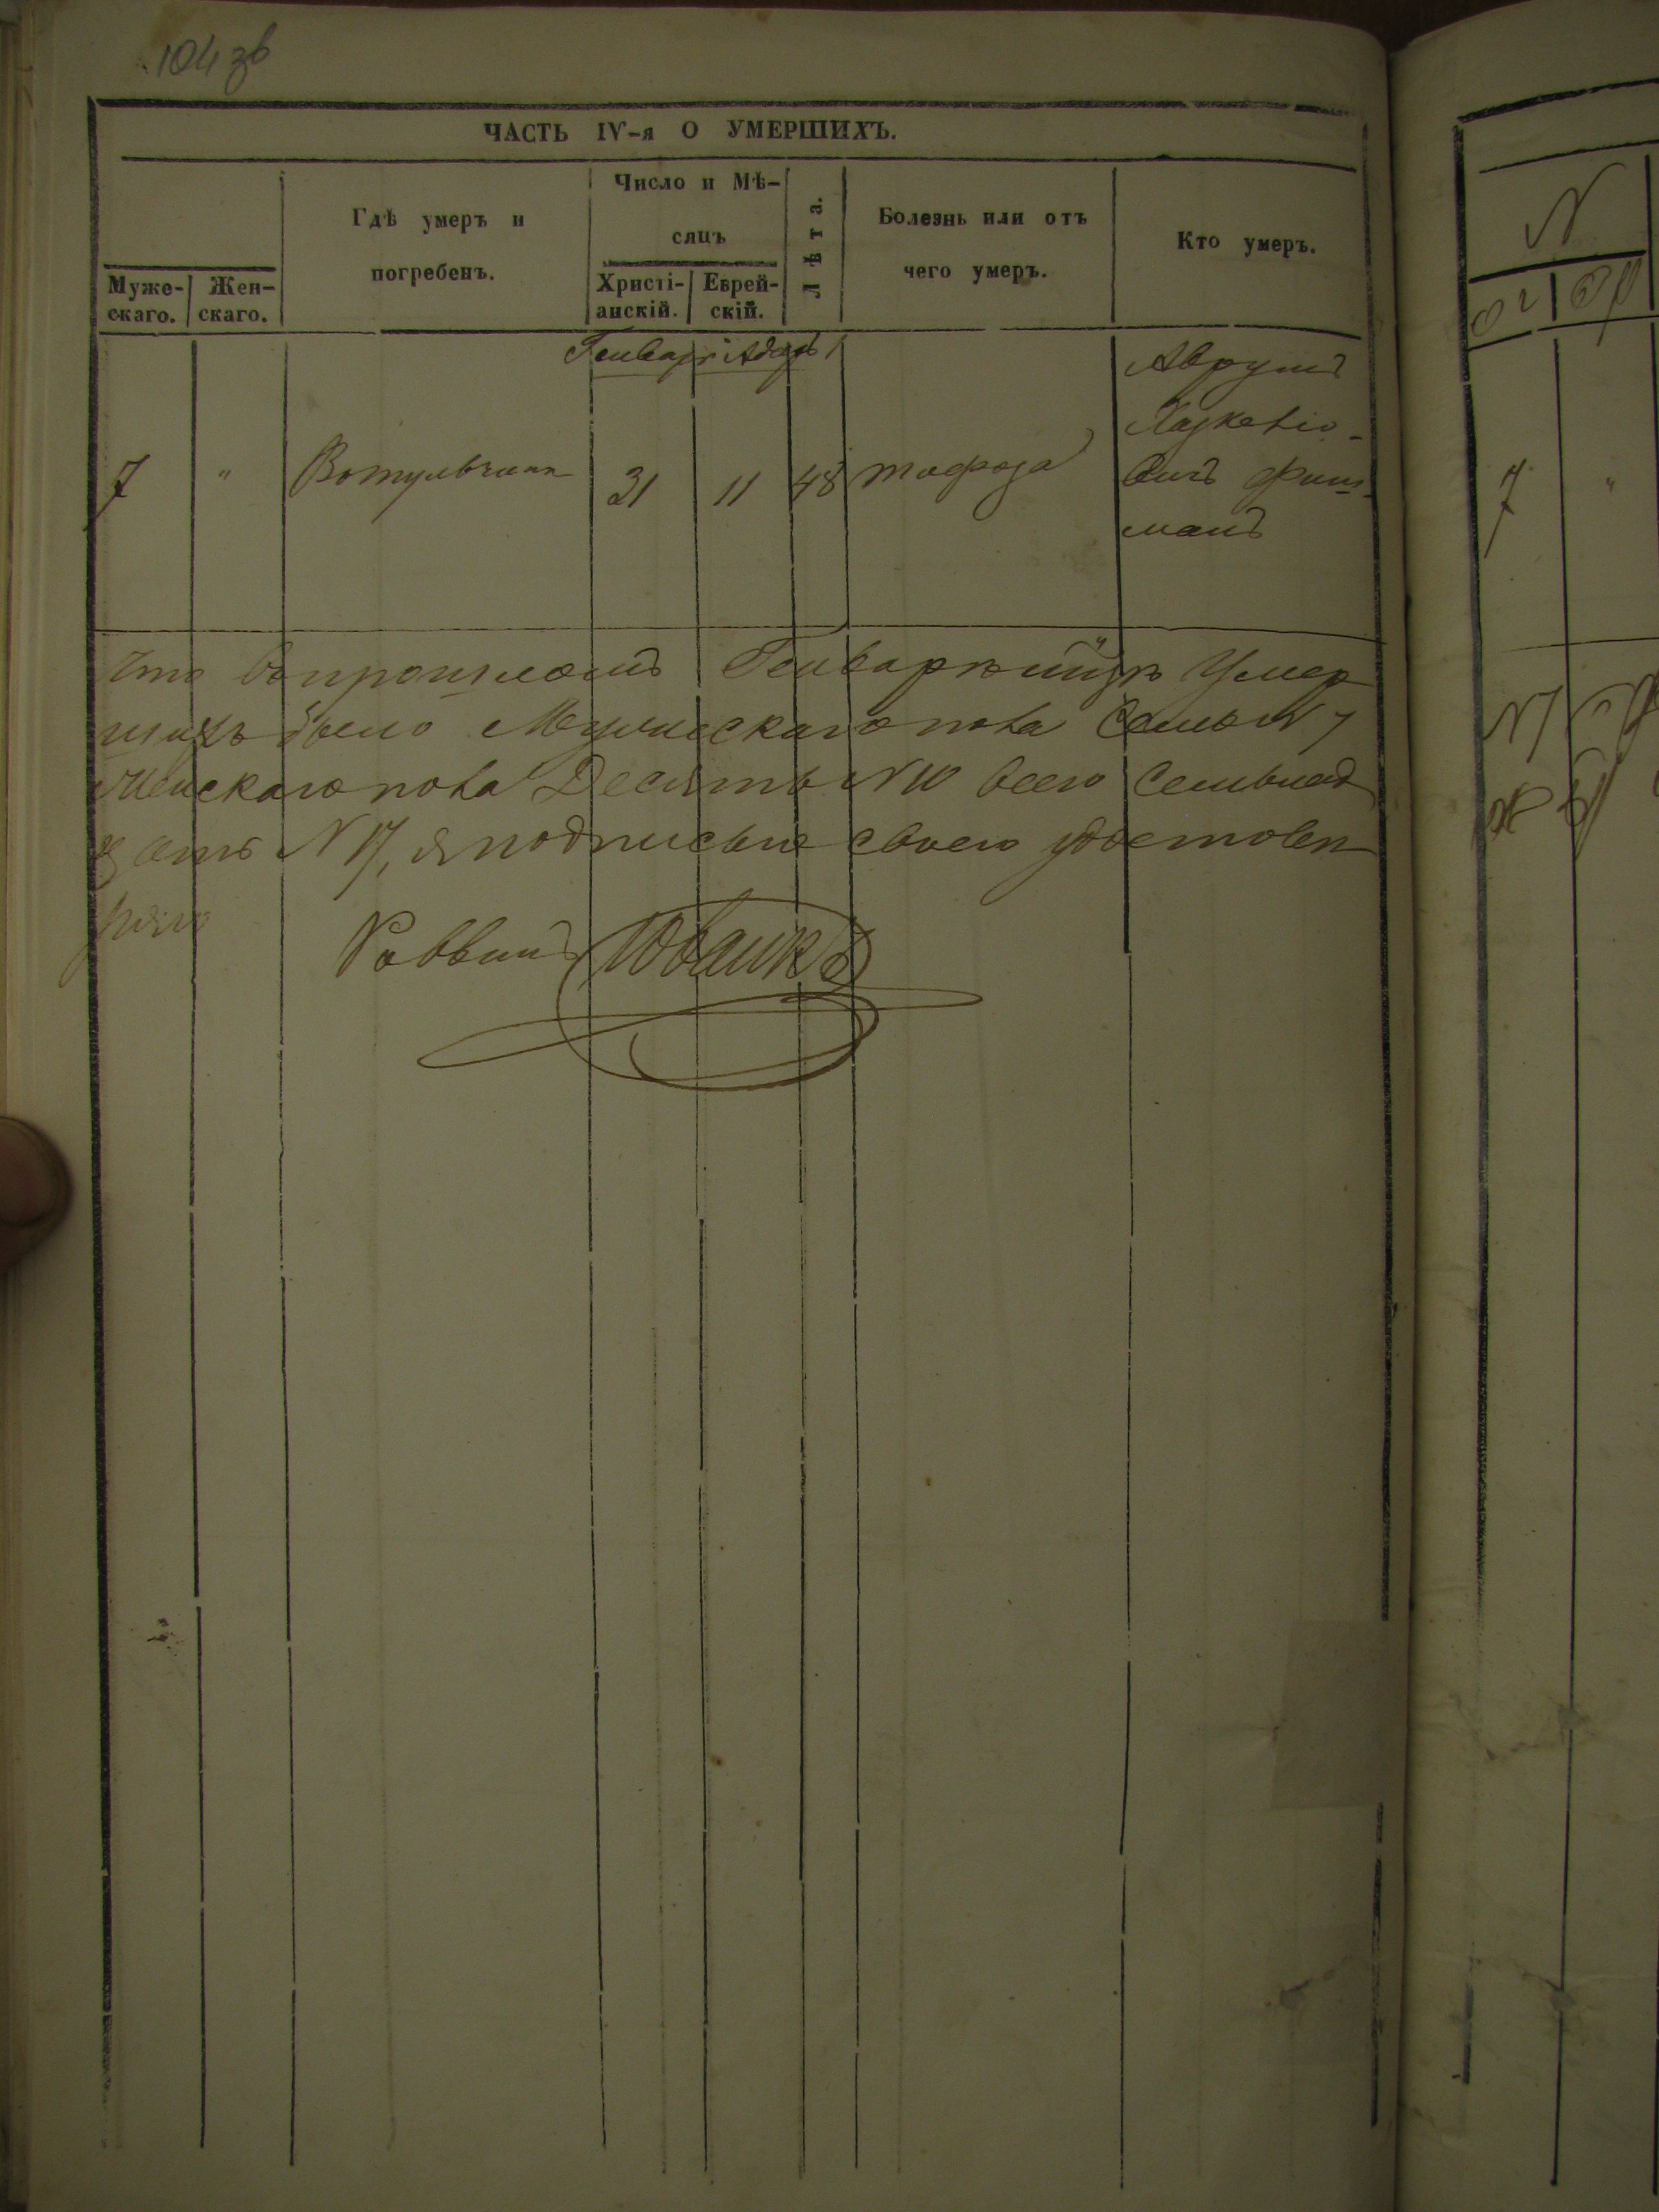 104 зв
ЧАСТЬ IV-я О УМЕРШИХЪ.
Муже-
скаго.
Жен-
скаго.
Гдѣ умеръ и
погребенъ.
Число и Мѣ-
сяцъ
Христі-
анскій.
Еврей-
скій.
Лѣта.
Болезнь или отъ
чего умеръ.
Кто умеръ.
Генварь Адаръ
7 " Вотульчинѣ 31 11 48
Аврумъ
вичъ Фиш-
манъ
Что въ прошломъ Генварь м-цѣ Умер
шихъ было Мужескаго пола Семь N 7
Женскаго пола Десять N 10 всего Семьнад
цать N 17, я подписью своею удостовѣ
ряю
Раввинъ
N
7 "